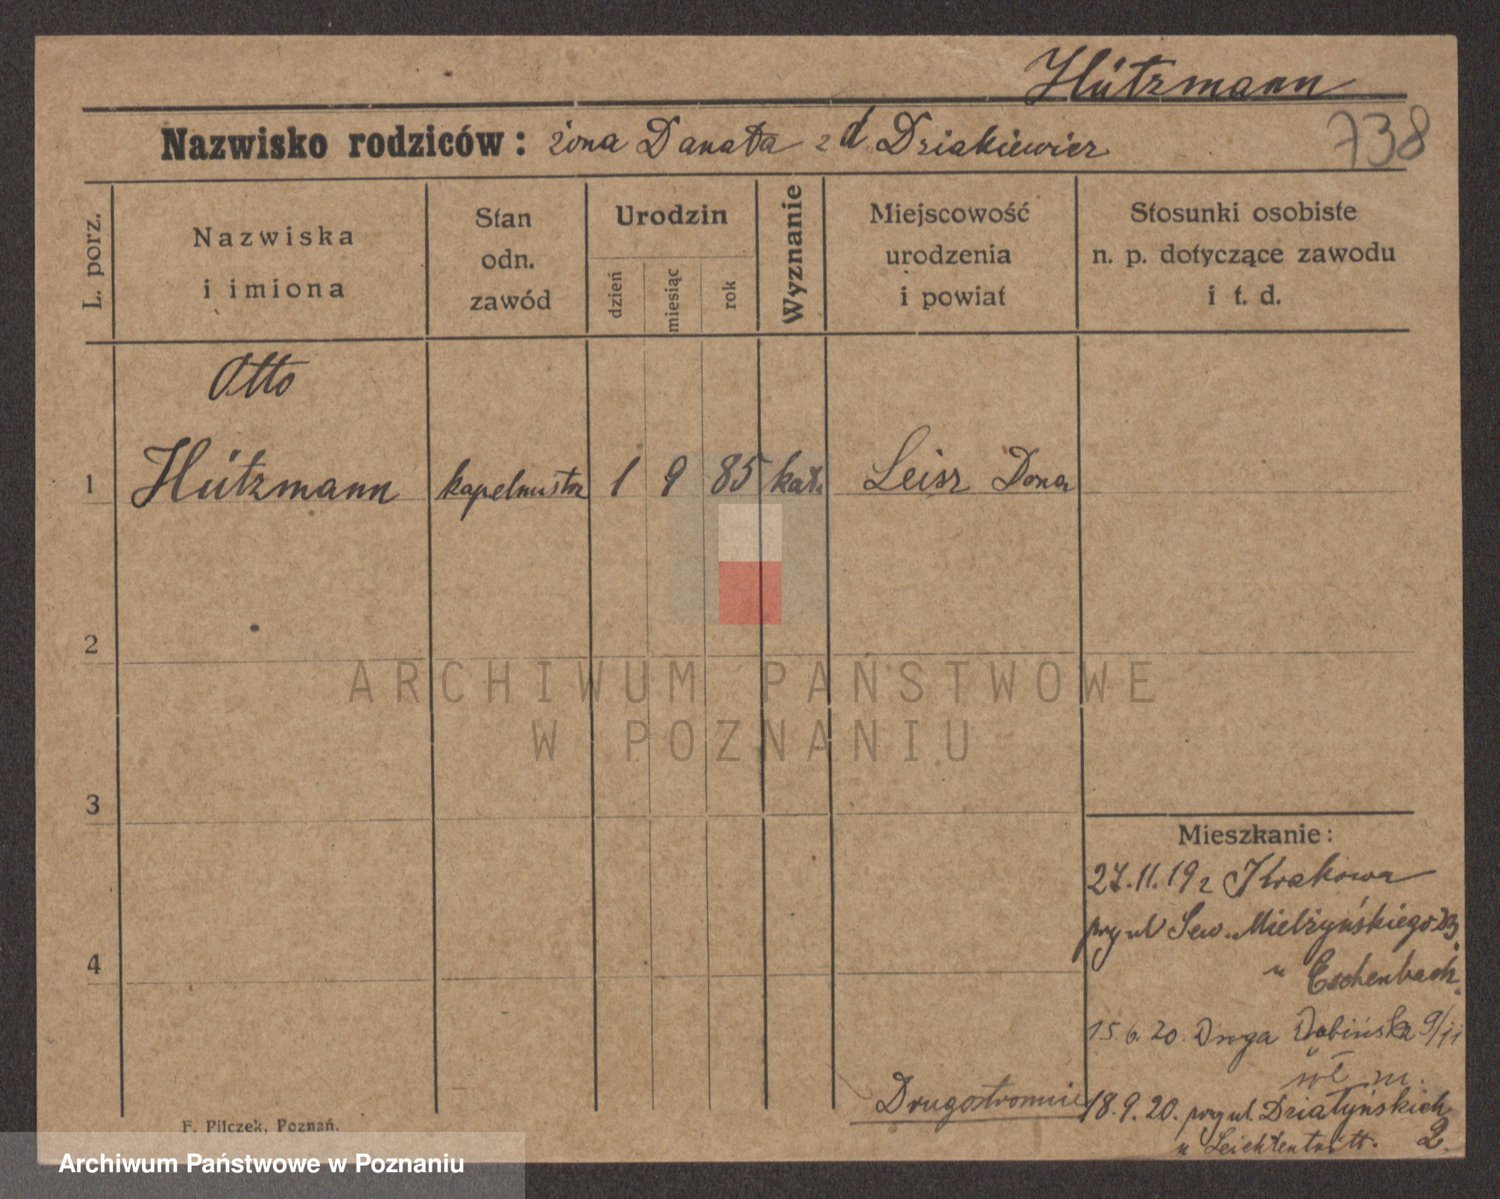 Hützmann
Nazwisko rodziców: żona Danata z d Dziakiewicz
738
L. porz.
Nazwiska
i imiona
Stan
odn.
zawód
Urodzin
dzień
miesiąc
rok
Wyznanie
Miejscowość
urodzenia
i powiat
Stosunki osobiste
n. p. dotyczące zawodu
i t. d.
Otto
1 Hützmann kapelmistrz 1 9 85 kat. Leisz Dona
2
ARCHIWUM PAŃSTWOWE
W POZNANIU
3
Mieszkanie:
27.11.19 z Krakowa
przy ul Sew. Mielżyńskiego 23.
u Eschenbach.
4
15.6.20. Droga Dębińska 9/11
wł m.
Drugostronnie
18.9.20. przy ul. Działyńskich 2.
u
F. Pilczek, Poznań.
Archiwum Państwowe w Poznaniu